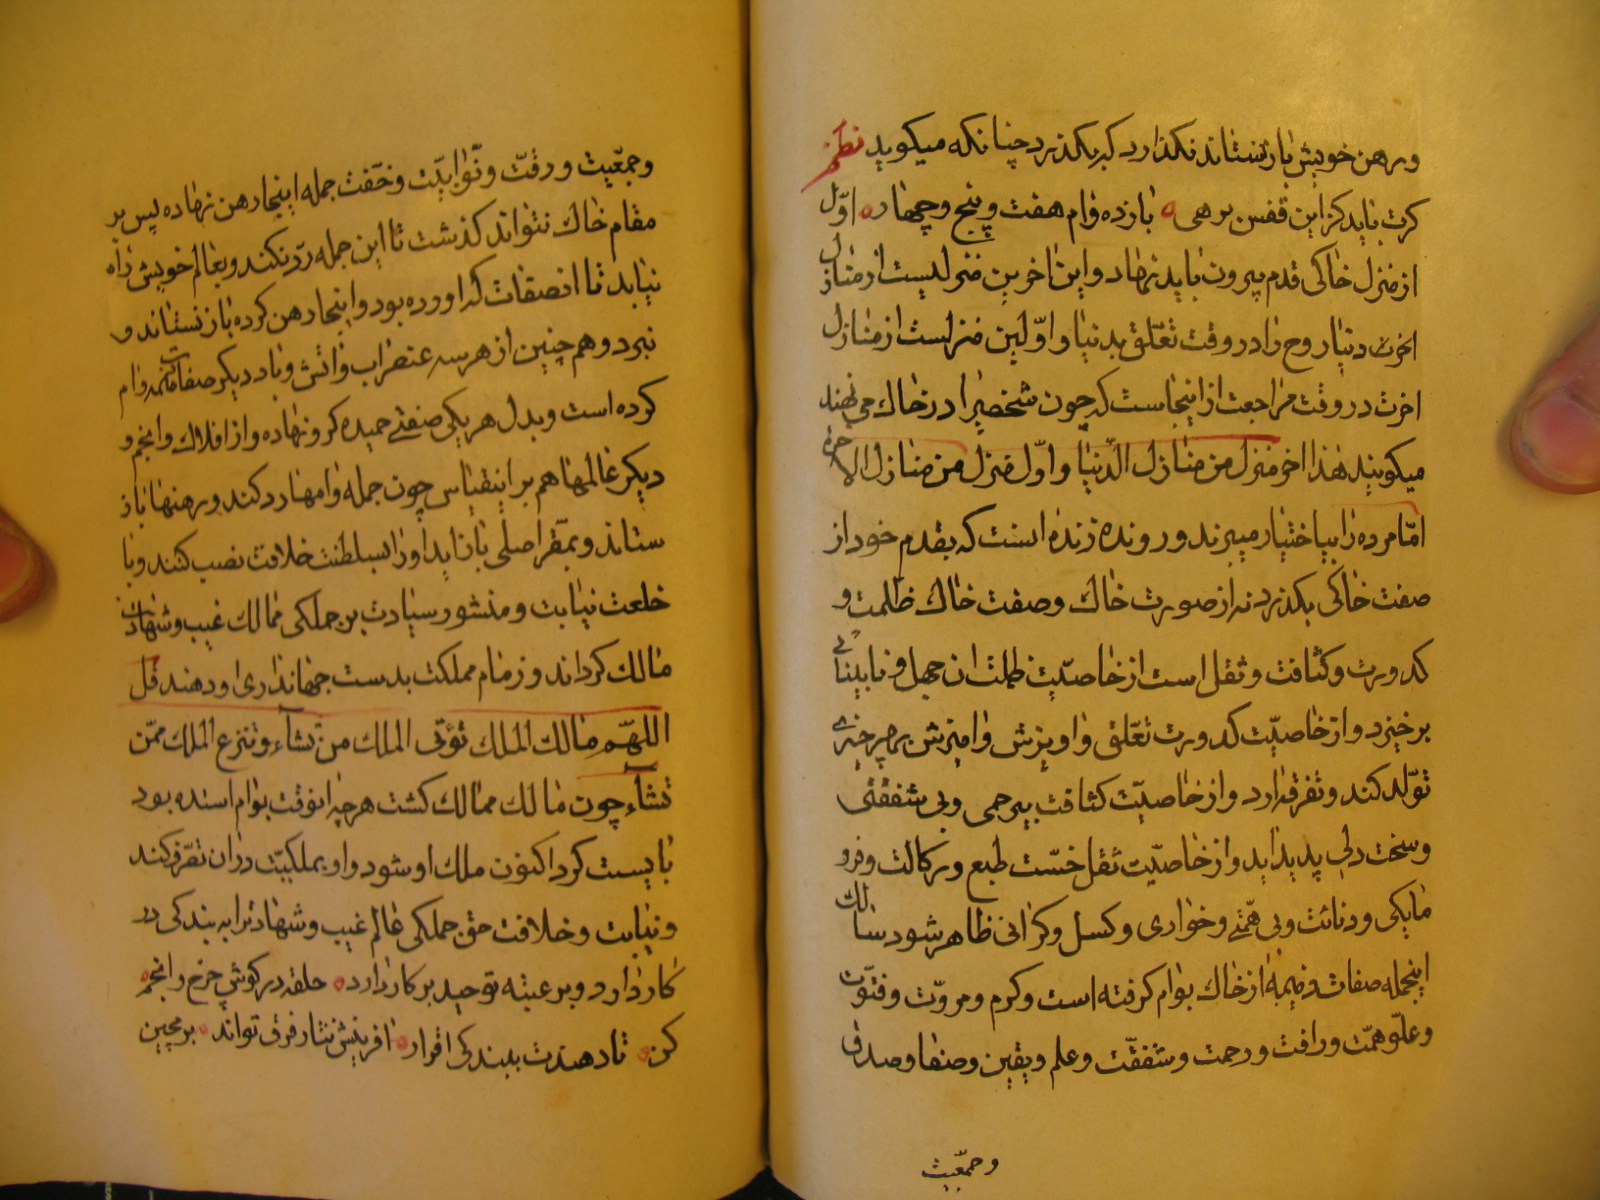 ورهن خویش باز نستاند نکذارد که بکذرد چنانکه میکوید نظم
کرت باید کز این قفس برهی ه باز ده وام هفت و پنج و چهار ه اوّل
از منزل خاکی قدم بیرون باید نهاد و این آخرین منزلیست از منازل
آخرت دنیا روح را در وقت تعلّق بدنیا و اوّلین منزلست از منازل
آخرت در وقت مراجعت از اینجاست که چون شخصیرا در خاک می نهند
میکویند هذا آخر منزل من منازل الدّنیا و اوّل منزل من منازل الآخره
امّا مرده را بیاختیار میبرند و رونده زنده آنست که بقدم خود از
صفت خاکی بکذرد نه از صورت خاک و صفت خاک ظلمت و
کدورت و کثافت و ثقل است از خاصیّت ظلمت آن جهل و نابینائی
برخیزد و از خاصیّت کدورت تعلّق و آویزش و آمیزش بهر چیزی
تولّد کند و تفرقه آرد و از خاصیّت کثافت بیرحمی و بی شفقتی
و سخت دلی پدید آید و از خاصیّت ثقل خسّت طبع و رکاکت و فرو
مایکی و دنائت و بی همّتی و خواری و کسل و کرانی ظاهر شود سالک
اینجمله صفات ذمیمه از خاک بوام کرفته است و کرم و مروّت و فتوّت
و علوّ همّت و رافت و رحمت و شفقّت و علم و یقین و صفا و صدق
و جمعّیت
و جمعّیت و رقّت و نوّابیّت و خفّت جمله اینجا رهن نهاده پس بر
مقام خاک نتواند کذشت تا این جمله ردّ نکند و بعالم خویش راه
نیابد تا آنصفات که آورده بود و اینجا رهن کرده باز نستاند و
نبرد و همچنین از هر سه عنصر آب و آتش و باد دیکر صفات ذمیمه وام
کرده است و بدل هر یکی صفتی حمیده کرو نهاده و از افلاک و انجم و
دیکر عالمها هم بر اینقیاس چون جمله وامها رد کند و رهنها باز
ستاند و بمقرّ اصلی باز آید او را بسلطنت خلافت نصب کنند و با
خلعت نیابت و منشور سیادت بر جملکی ممالک غیب و شهادت
مالک کرداند و زمام مملکت بدست جهانداری او دهند قل
اللهّم مالک الملک تؤتی الملک من تشآء و تنزع الملک ممّن
تشآء چون مالک ممالک کشت هر چه آنوقت بوام استده بود
بایست کرد اکنون ملک او شود و او بملکیّت در آن تصّرف کند
و نیابت و خلافت حق جملکی عالم غیب و شهادترا به بندکی در
کار دارد و بر عتبه توحید بر کار دارد ه حلقه در کوش چرخ و انجم ه
کن ه تا دهندت ببندکی اقرار ه آفرینش نثار فرق تواند ه بر مچین